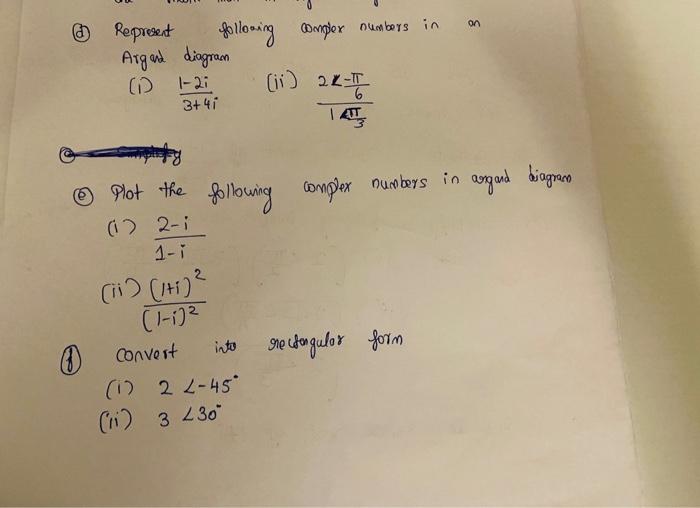 (d) Represent following complex numbers in an
Argand diagram
(i) 1-2i / 3+4i (ii) 2∠-π/6 / 1∠π/3
(e) Plot the following complex numbers in argand diagram
(i) 2-i / 1-i
(ii) (1+i)² / (1-i)²
(f) convert into rectangular form
(i) 2 ∠-45°
(ii) 3 ∠30°